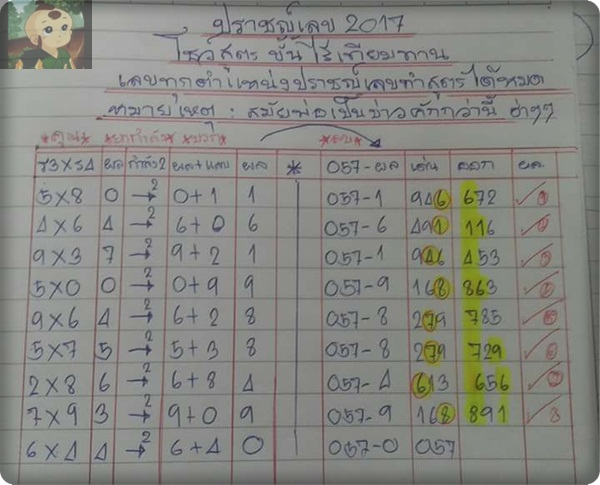 ปราชญ์เลข 2017
โชว์สูตร ขั้นไร้เทียมทาน
เลขทุกตำแหน่งปราชญ์เลขทำสูตรได้หมด
หมายเหตุ : สมัยพ่อเป็นข่าวคักกว่านี้ ฮ่าๆๆ
*คูณ* *ยกกำลัง* *บวก* *ลบ*
ร3×ร4 ผล กำลัง2 ผล+แถบ ผล * 057-ผล เด่น ออก ผล
5×8 0 →2 0+1 1 057-1 946 672 ✓
4×6 4 →2 6+0 6 057-6 491 116 ✓
9×3 7 →2 9+2 1 057-1 946 453 ✓
5×0 0 →2 0+9 9 057-9 168 863 ✓
9×6 4 →2 6+2 8 057-8 279 785 ✓
5×7 5 →2 5+3 8 057-8 279 729 ✓
2×8 6 →2 6+8 4 057-4 613 656 ✓
7×9 3 →2 9+0 9 057-9 168 891 ✓ 8
6×4 4 →2 6+4 0 057-0 057